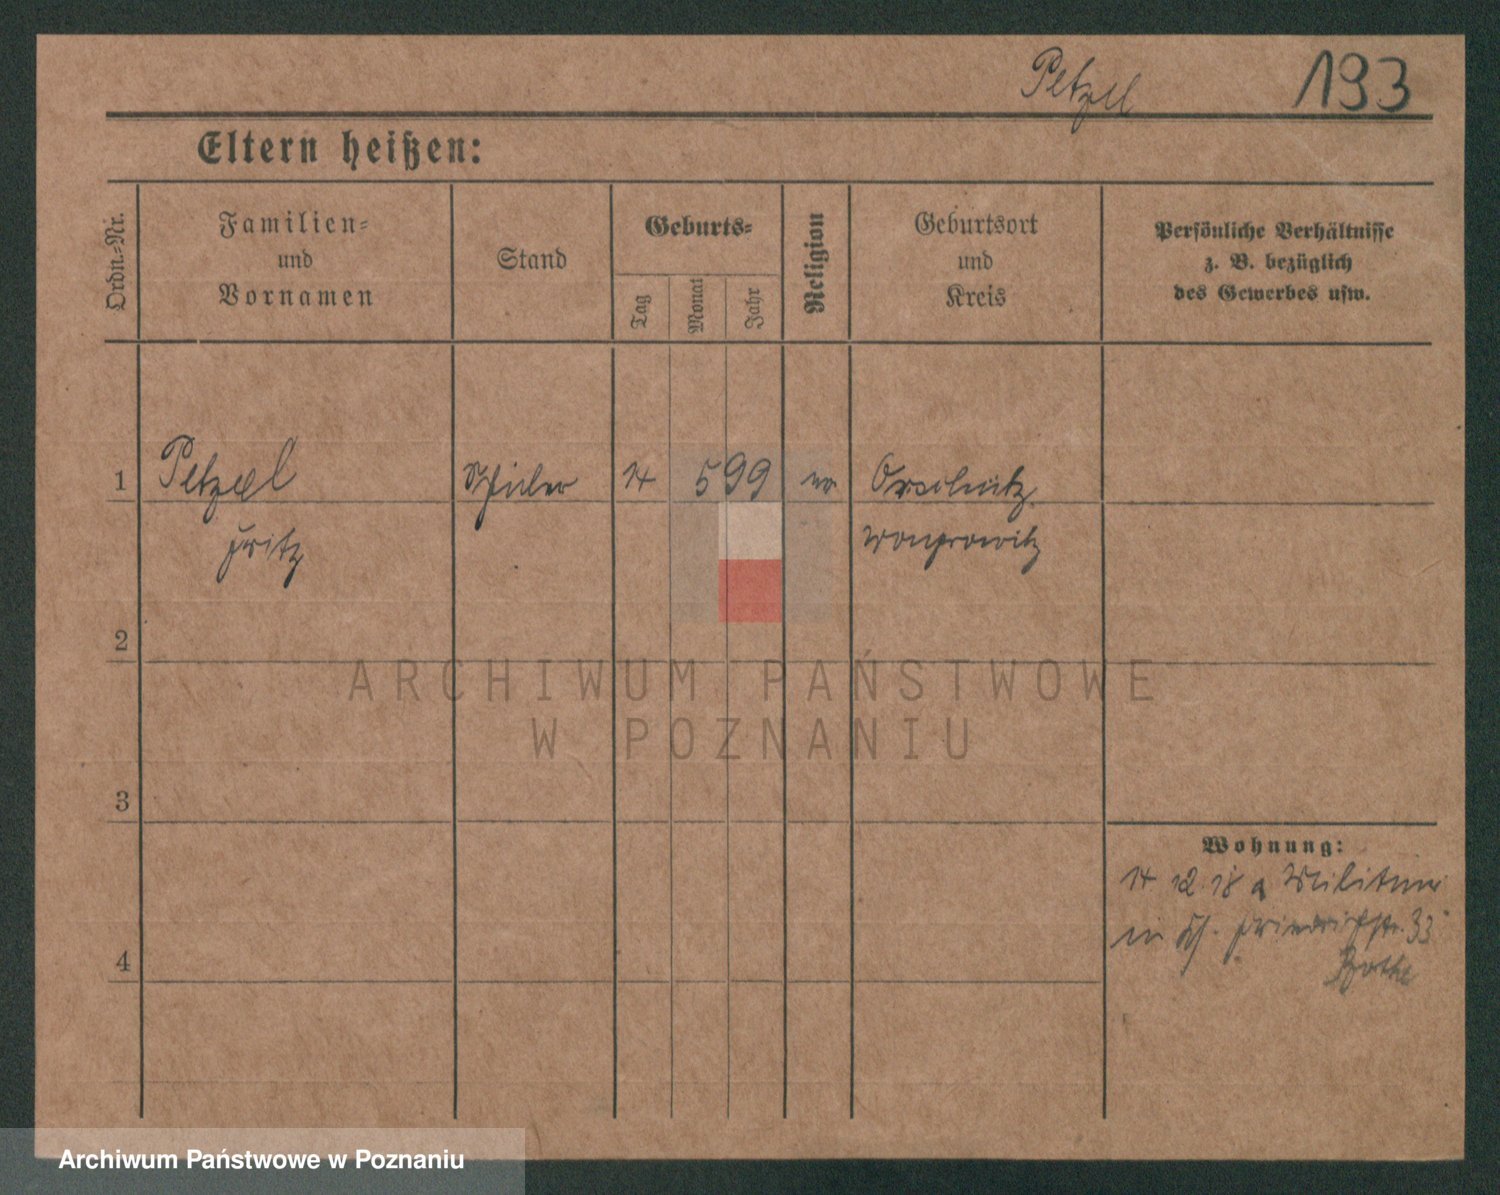 Petzel 193
Eltern heißen:
Ordn.-Nr.
Familien-
und
Vornamen
Stand
Geburts-
Tag
Monat
Jahr
Religion
Geburtsort
und
Kreis
Persönliche Verhältnisse
z. B. bezüglich
des Gewerbes usw.
1 Petzel Schüler 14 5 99 ev
Fritz Wongrowitz
2
3
4
Wohnung:
14 12 18 a Militär
in Friedrichstr. 33
Bothe
ARCHIWUM PAŃSTWOWE
W POZNANIU
Archiwum Państwowe w Poznaniu